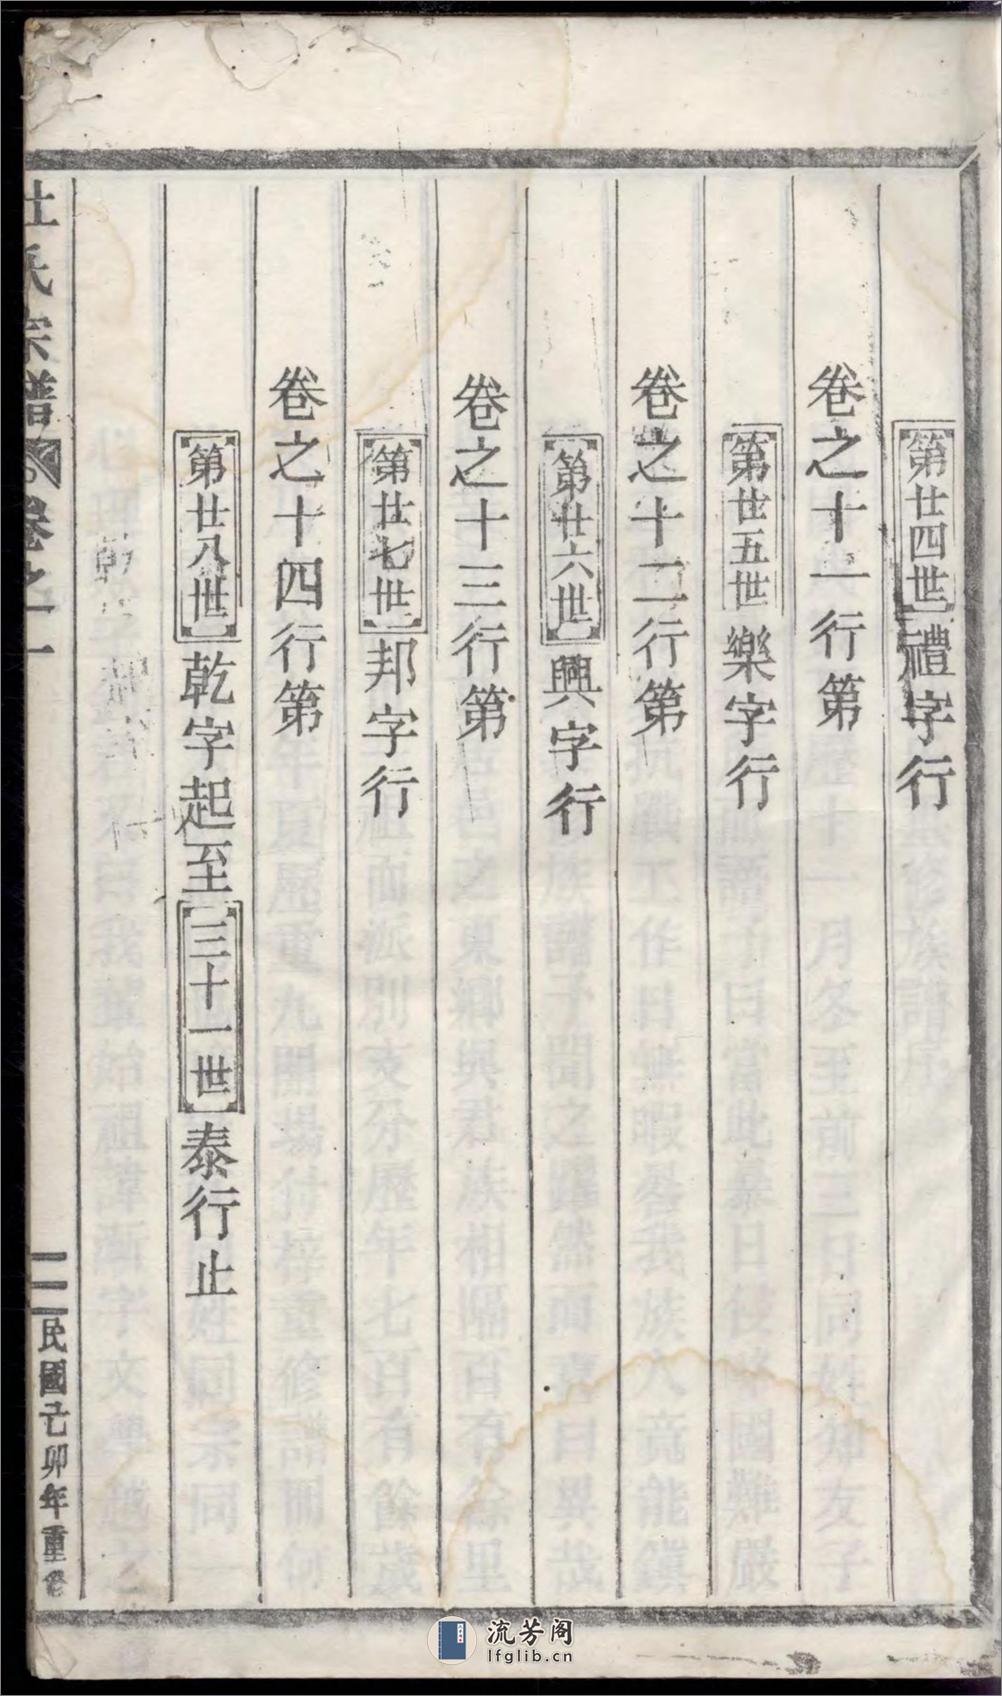 第廿四世禮字行
卷之十一行第
第廿五世樂字行
卷之十二行第
第廿六世興字行
卷之十三行第
第廿七世邦字行
卷之十四行第
第廿八世乾字起至三十一世泰行止
杜氏宗譜 卷之一 二 民國己卯年重修
流芳阁
lfglib.cn